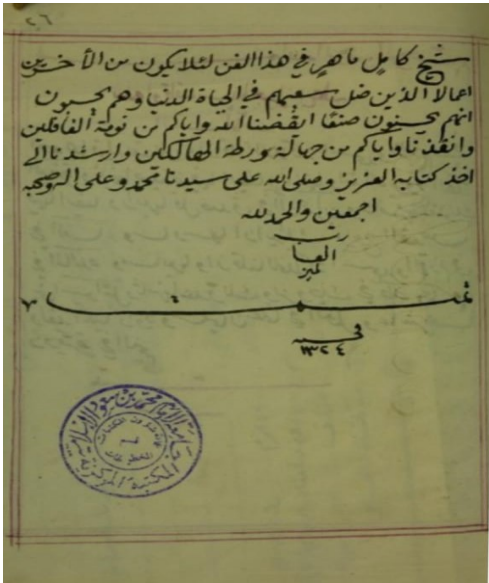 ٢٦
شيخ كامل ماهر في هذا الفن لئلا يكون من الأخسرين
اعمالا الذين ضل سعيهم في الحياة الدنيا وهم يحسبون
انهم يحسنون صنعًا ايقضنا الله واياكم من نومة الغافلين
وانقذنا واياكم من جهالة ورطة الهالكين وارشدنا الى
اخذ كتابه العزيز وصلى الله على سيدنا محمد وعلى اله وصحبه
اجمعين والحمد لله
رب
العا
لمين
تمت
في
سنة
١٣٢٤
جامعة الامام محمد بن سعود الاسلامية
المكتبة المركزية